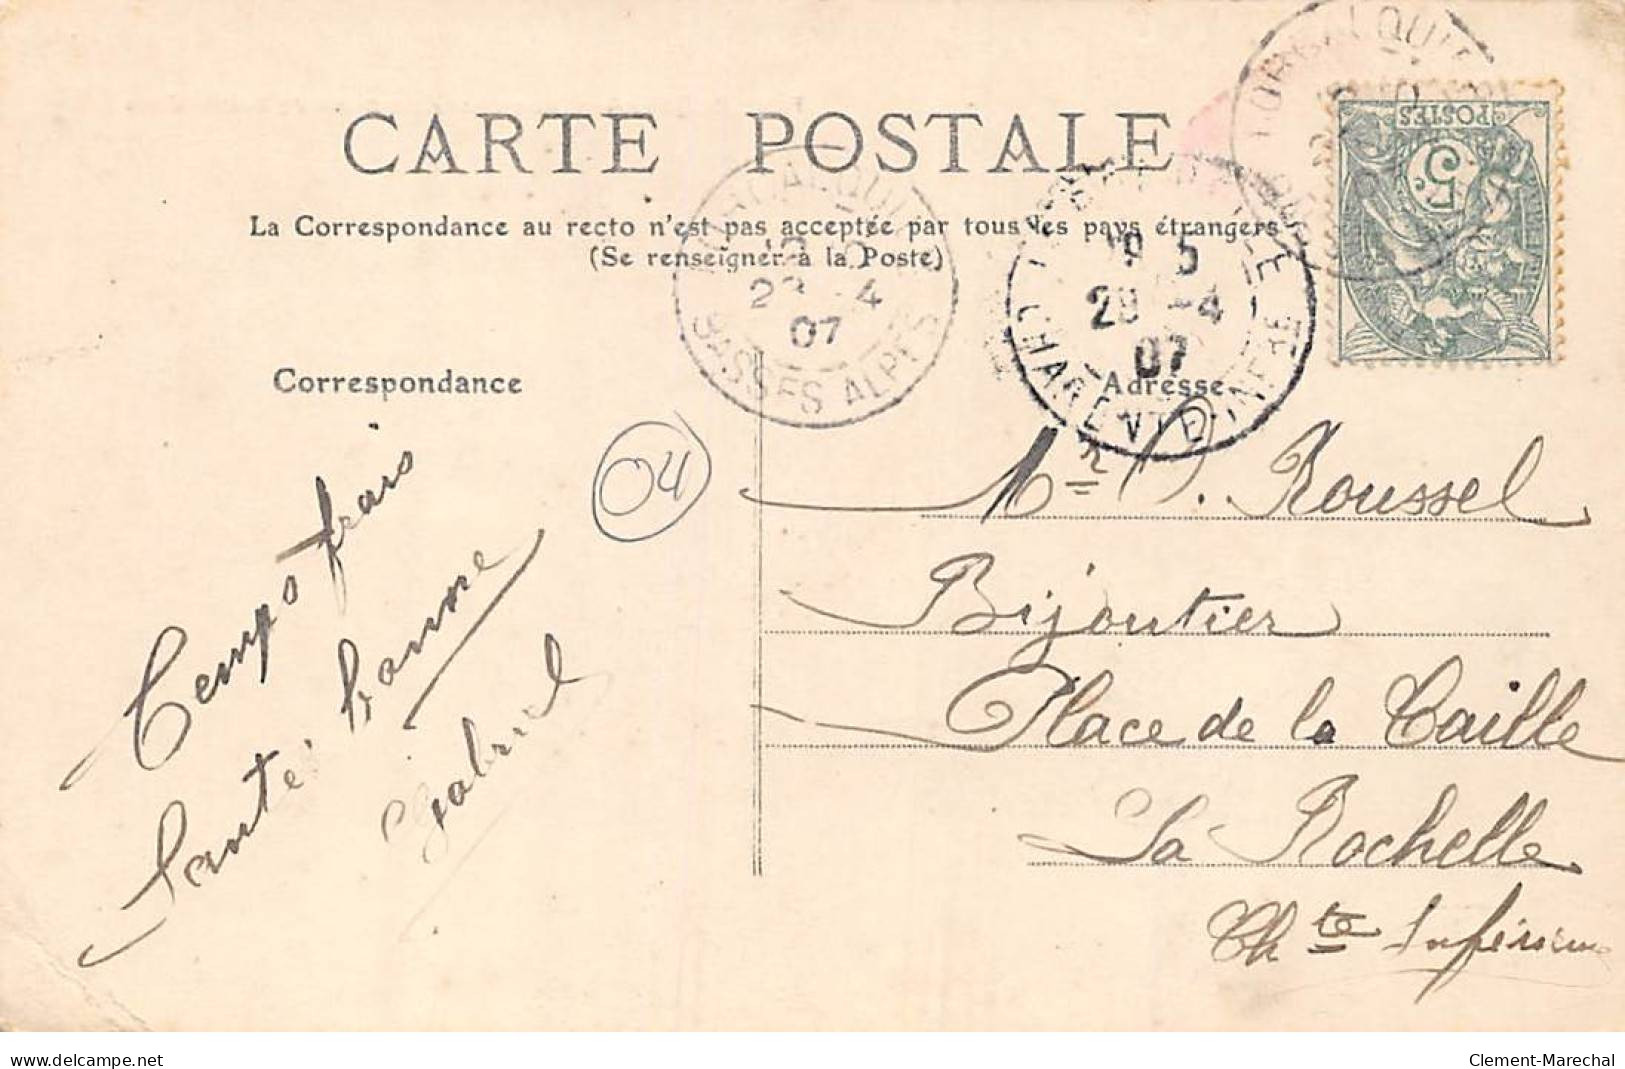 CARTE POSTALE
La Correspondance au recto n'est pas acceptée par tous les pays étrangers
(Se renseigner à la Poste)
FORCALQUIER
23 -4
07
BASSES ALPES
19 5
29 -4
07
CHARENTE-INFRE
POSTES
5
Correspondance
Adresse
04
Temps frais
Santé bonne
Gabriel
Mr O. Roussel
Bijoutier
Place de la Caille
La Rochelle
Chte Inférieure
www.delcampe.net
Clement-Marechal